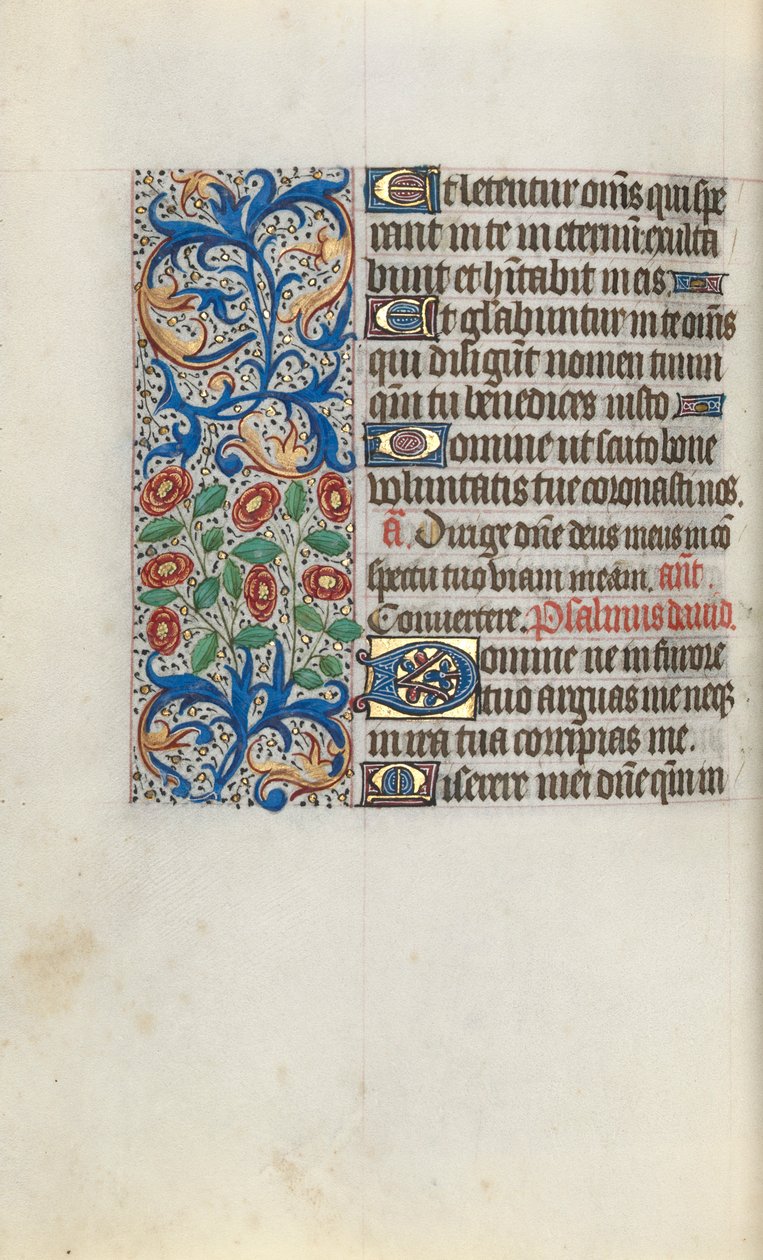 Et letentur om̄s qui spe
rant in te in eternū: exulta
bunt et hītabit in eis.
Et gl̄abuntur in te om̄s
qui diligūt nomen tuum
qm̄ tu benedices iusto
Domine ut scuto bone
voluntatis tue coronasti nos.
a͞. Dirige dn̄e deus meus in cō
spectu tuo viam meām. an̄t.
Convertere. Psalmus david.
Domine ne in furore
tuo arguas me neqꝫ
in ira tua corripias me.
Miserere mei dn̄e qm̄ in